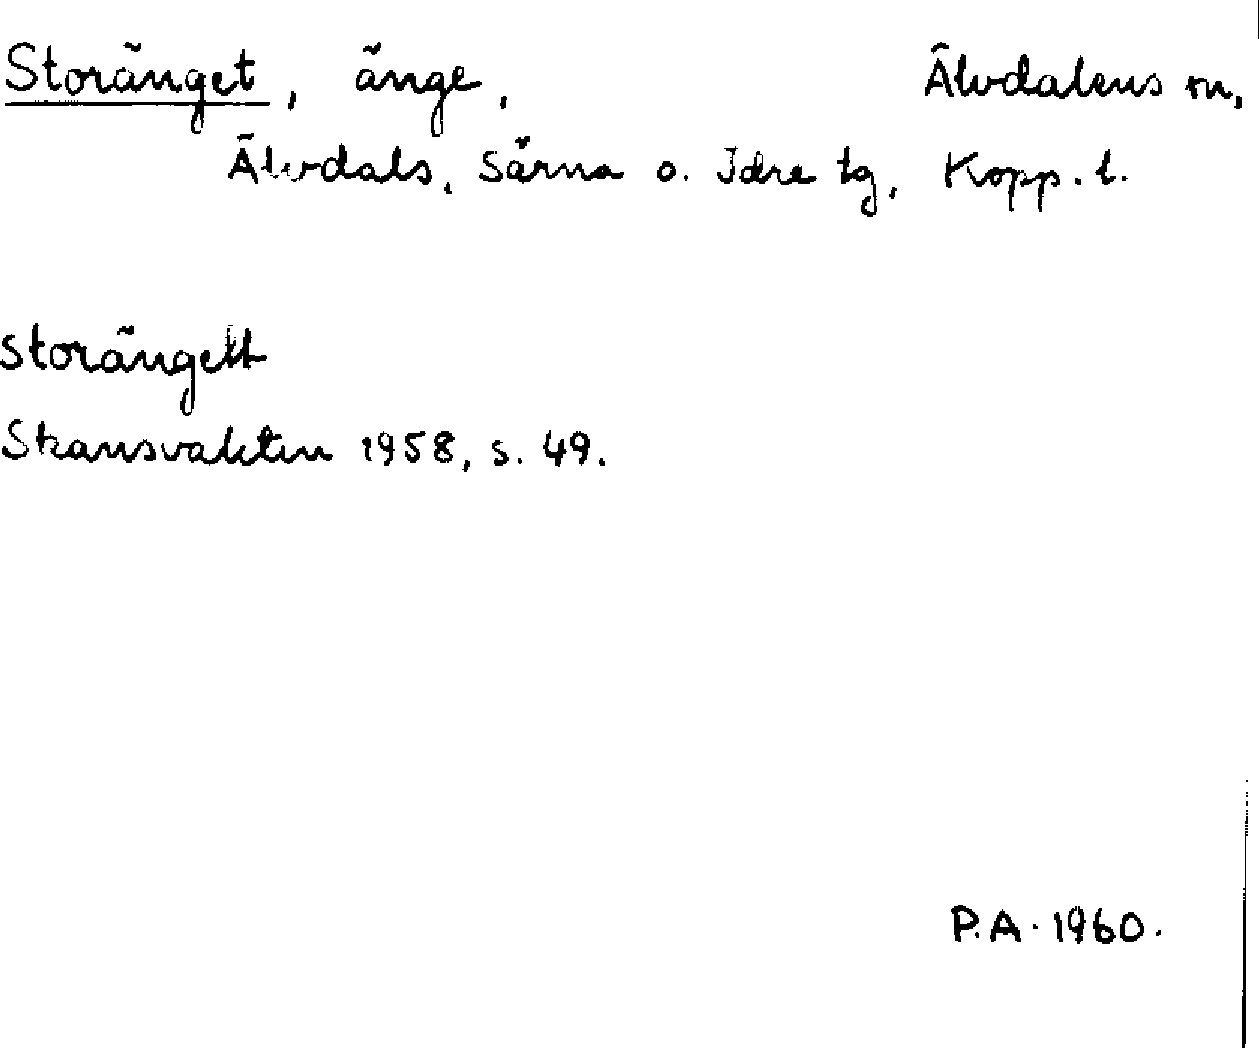 Storänget, änge, Älvdalens sn,
Älvdals, Särna o. Idre tg, Kopp. l.
Storängett
Skansvakten 1958, s. 49.
P.A. 1960.